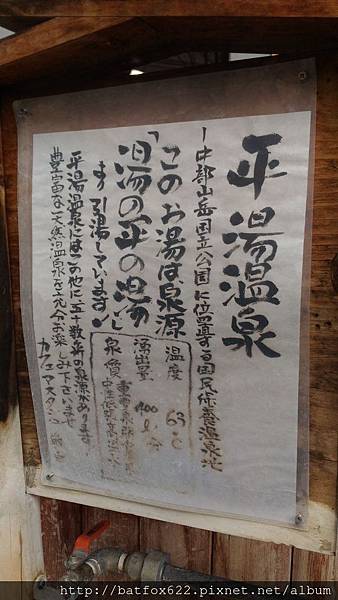 平湯温泉
ー中部山岳国立公園に位置する国民保養温泉地
「このお湯は泉源
「湯の平の湯」
より引湯しています」
温度 63℃
湧出量 400ℓ/分
泉質
平湯温泉にはこの他に五十数本の泉源があります
豊富な天然温泉を充分お楽しみ下さいませ
http://batfox622.pixnet.net/album